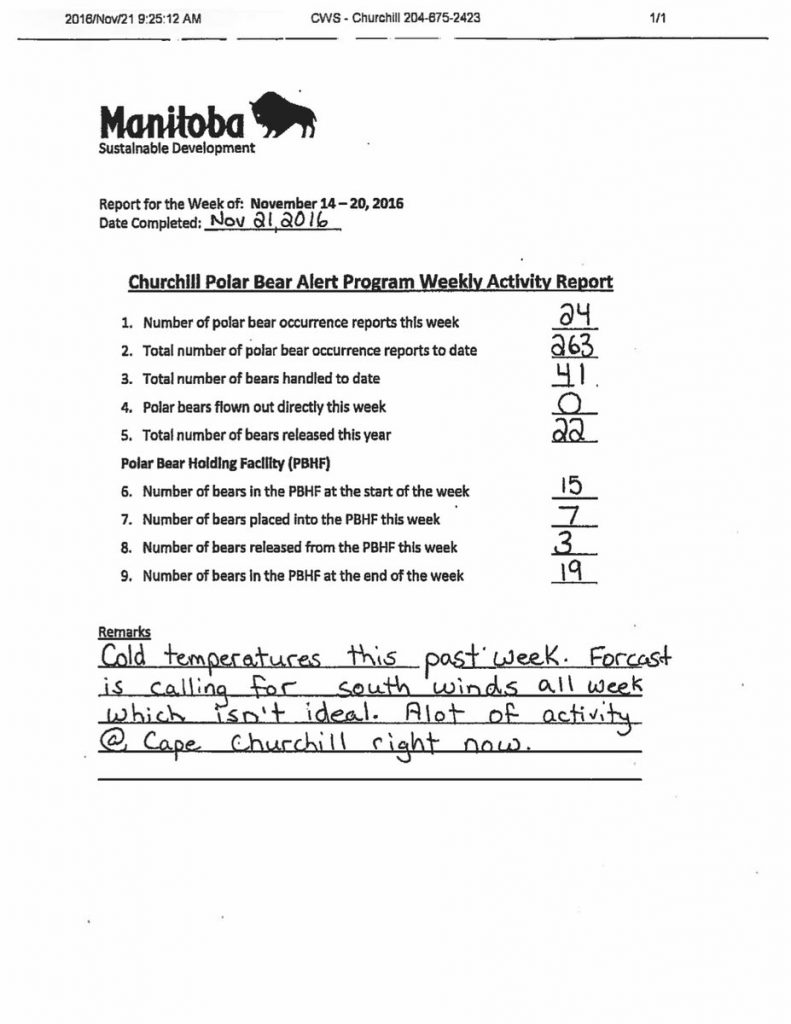 2016/Nov/21 9:25:12 AM CWS - Churchill 204-675-2423 1/1
Manitoba
Sustainable Development
Report for the Week of: November 14 – 20, 2016
Date Completed: Nov 21, 2016
Churchill Polar Bear Alert Program Weekly Activity Report
1. Number of polar bear occurrence reports this week 24
2. Total number of polar bear occurrence reports to date 263
3. Total number of bears handled to date 41
4. Polar bears flown out directly this week 0
5. Total number of bears released this year 22
Polar Bear Holding Facility (PBHF)
6. Number of bears in the PBHF at the start of the week 15
7. Number of bears placed into the PBHF this week 7
8. Number of bears released from the PBHF this week 3
9. Number of bears in the PBHF at the end of the week 19
Remarks
Cold temperatures this past week. Forcast
is calling for south winds all week
which isn't ideal. Alot of activity
@ Cape Churchill right now.